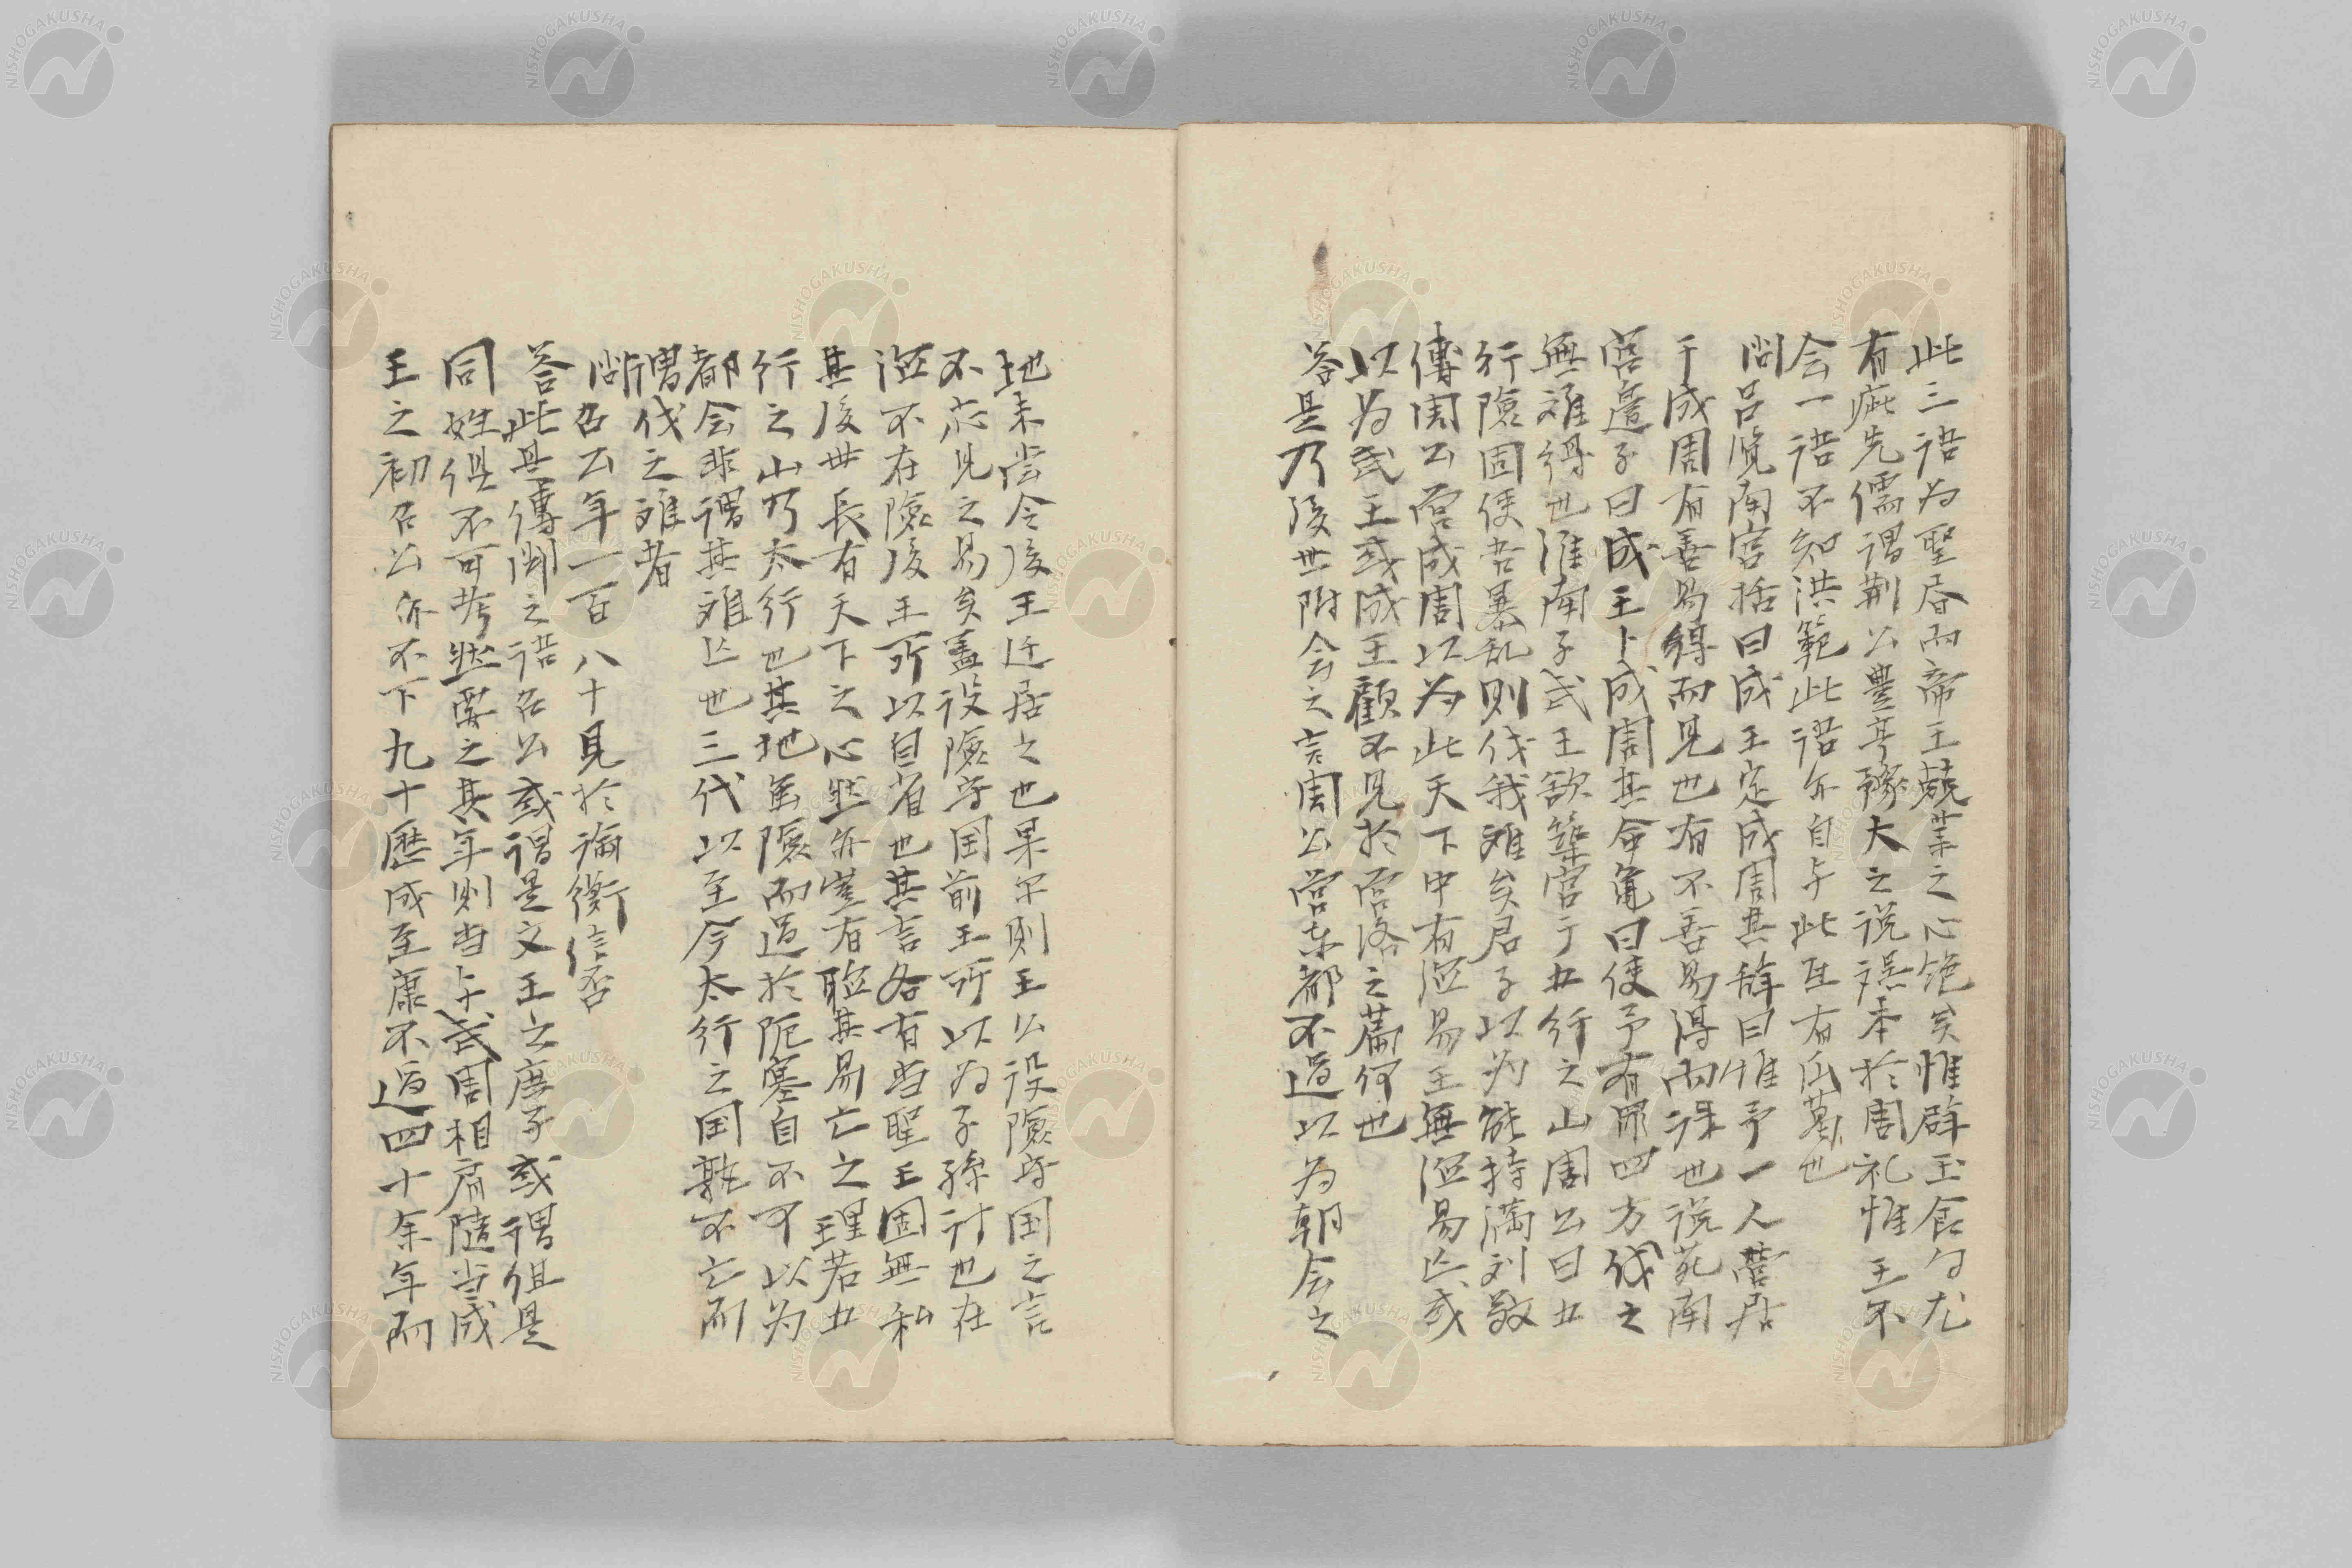 此三語為聖居而帝王兢業之心絶矣惟辟玉食句尤
有疵先儒謂荆公豊亨豫大之説誤本於周礼惟王不
会一語不知洪範此語亦自与此生有瓜葛也
問呂覧南宮括曰成王定成周其辞曰惟予一人營居
于成周有善易得而見也有不善易得而誅也説苑南
宮邊子曰成王卜成周其命龜曰使予有罪四方伐之
無難得也淮南子武王欲築宮于五行之山周公曰五
行險固使吾暴乱則伐我難矣君子以為能持満刘敬
傳周公営成周以為此天下中有徳易王無徳易亡或
以為武王或成王顧不見於召洛之篇何也
答是乃後世附会之言周公営東都不過以為朝会之
地未嘗令後王迁居之也果尓則王公設險守国之言
不応見之易矣蓋設險守国前王所以為子孫計也在
徳不在險後王所以自省也其言各有当聖王固無私
其後世長有天下之心然亦豈有聴其易亡之理若五
行之山乃太行也其地虽險而過於阨塞自不可以為
都会非謂其难亡也三代以至今太行之国孰不亡而
謂伐之难者
問召公年一百八十見於論衡信否
答此是傳聞之語召公或謂是文王之庶子或謂但是
同姓俱不可考然要之其年則当与武周相肩随当成
王之初召公亦不下九十歷成至康不過四十余年而
NISHOGAKUSHA